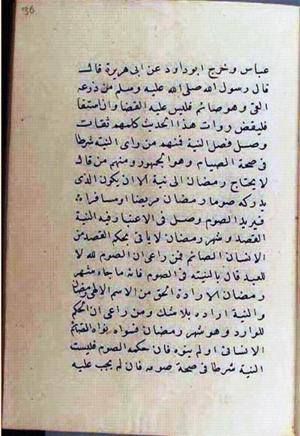 36
عباس وخرج ابوداود عن ابى هريرة قال
قال رسول الله صلى الله عليه وسلم من ذرعه
القئ وهو صائم فليس عليه القضا وان استقا
فليقض روات هذا الحديث كلهم ثقات
وصل فصل النية فمنهم من راى النية شرطا
فى صحة الصيام وهو الجمهور ومنهم من قال
لا يحتاج رمضان الى نية الا ان يكون الذى
يدركه صوم رمضان مريضا او مسافرا
فيريد الصوم وصل فى الاعتبار فيه النية
القصد وشهر رمضان لا ياتى بحكم القصد من
الانسان الصائم فمن راعى ان الصوم لله لا
للعبد قال بالنية فى الصوم فانه ما جاء شهر
رمضان الا بارادة الحق من الاسم الالهى رمضان
والنية ارادة بلا شك ومن راعى ان الحكم
للوارد وهو شهر رمضان فسواء نواه الصائم
الانسانى او لم ينوه فان حكمه الصوم فليست
النية شرطا فى صحة صومه فان لم يجب عليه